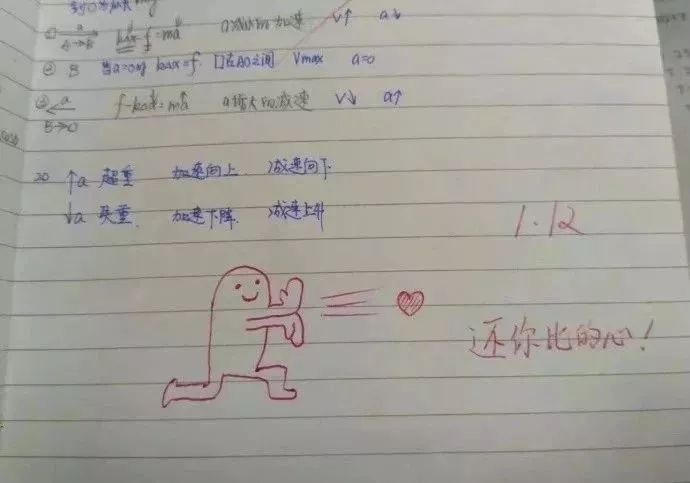 ① a A→B kΔx-f=ma a减小的加速 v↑ a↓
② B 当a=0时 kΔx=f. 口在AO之间 Vmax a=0
③ a B→O f-kΔx=ma a增大的减速 v↓ a↑
20 ↑a 超重 加速向上 减速向下
↓a 失重 加速下降 减速上升
1.12
还你比的心!